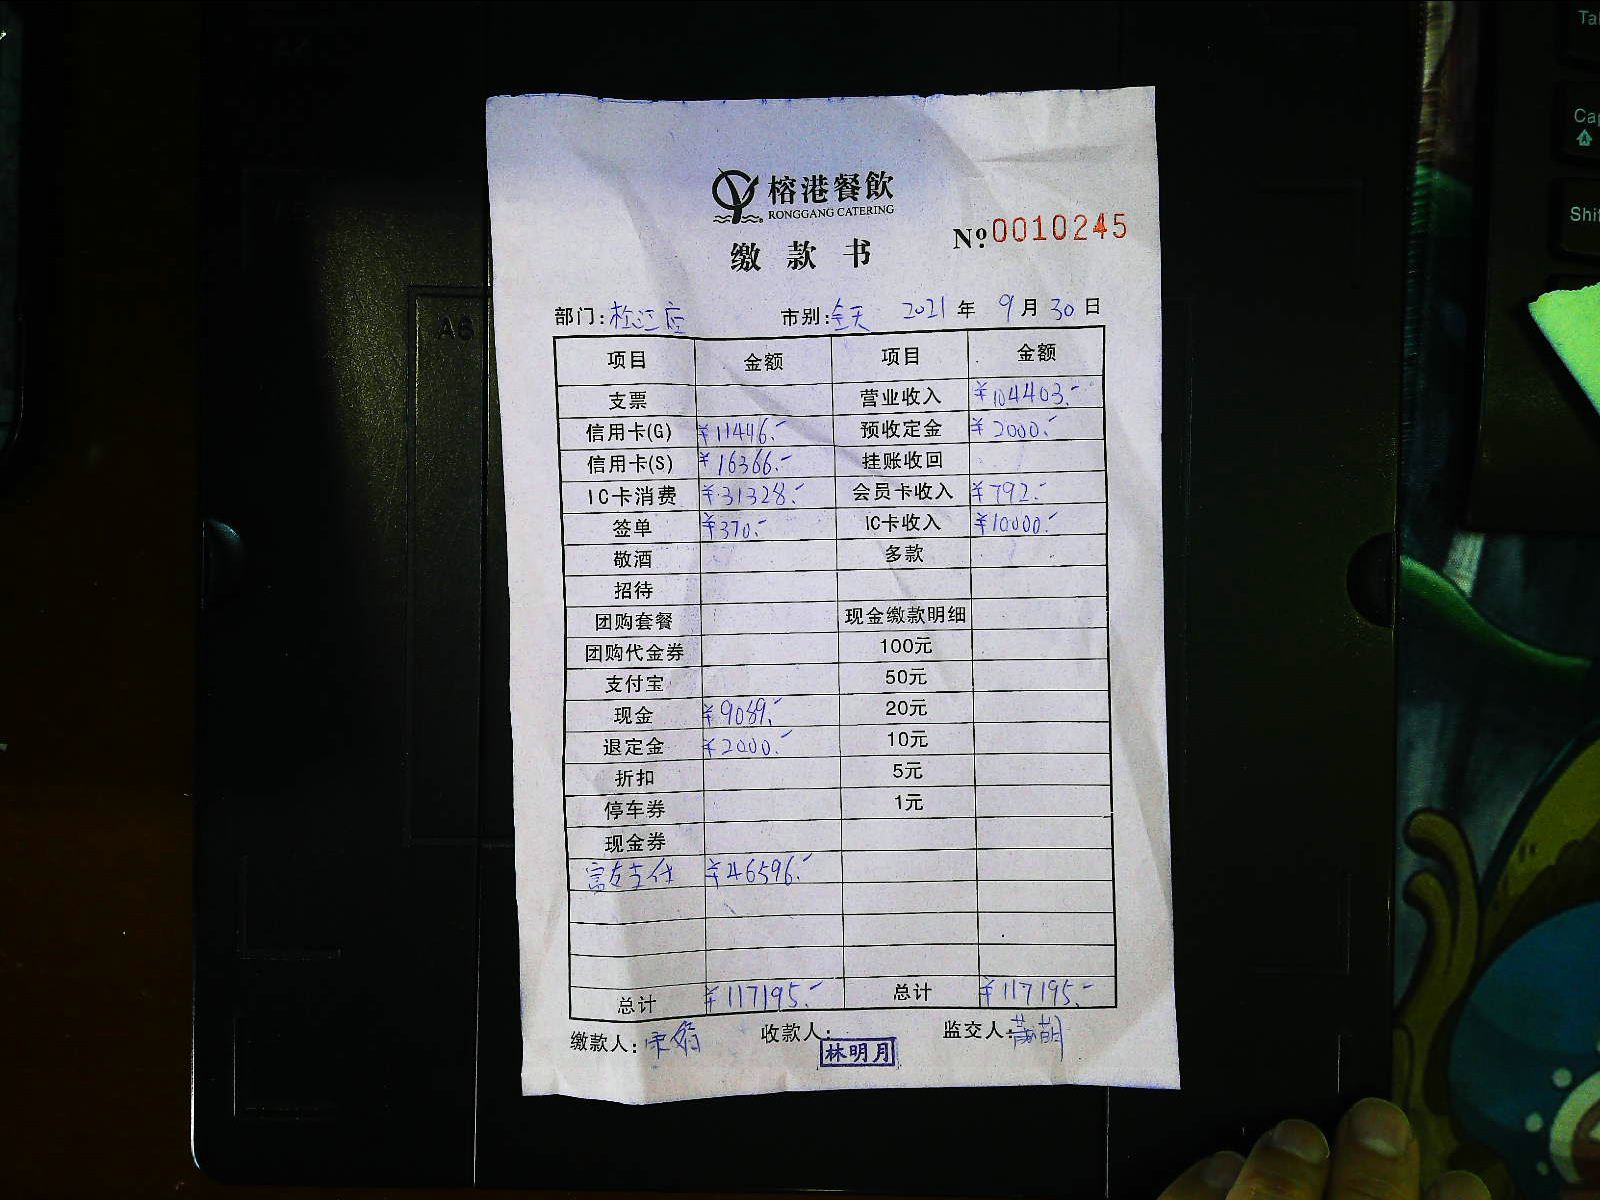 榕港餐飲
RONGGANG CATERING
缴款书
№0010245
部门:松江店 市别:全天 2021年9月30日
项目 金额 项目 金额
支票 营业收入 ¥104403.-
信用卡(G) ¥11446.- 预收定金 ¥2000.-
信用卡(S) ¥16366.- 挂账收回
IC卡消费 ¥31328.- 会员卡收入 ¥792.-
签单 ¥370.- IC卡收入 ¥10000.-
敬酒 多款
招待
团购套餐 现金缴款明细
团购代金券 100元
支付宝 50元
现金 ¥9089.- 20元
退定金 ¥2000.- 10元
折扣 5元
停车券 1元
现金券
富友支付 ¥46596.-
总计 ¥117195.- 总计 ¥117195.-
缴款人: 收款人: 林明月 监交人:
A6